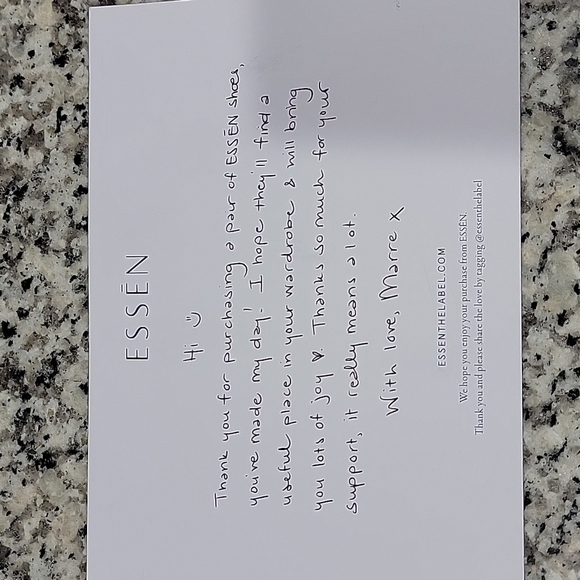 ESSĒN
Hi :)
Thank you for purchasing a pair of ESSĒN shoes,
you've made my day! I hope they'll find a
useful place in your wardrobe & will bring
you lots of joy ♥. Thanks so much for your
support, it really means a lot.
With love, Marre X
ESSENTHELABEL.COM
We hope you enjoy your purchase from ESSĒN.
Thank you and please share the love by tagging @essenthelabel